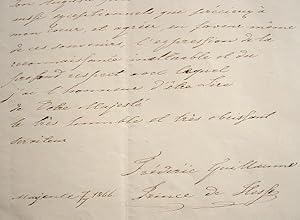 son auguste
aussi exceptionnels que précieux à
mon cœur et agréer, en faveur même
de ces souvenirs, l'expression de la
reconnaissance inaltérable et du
profond respect avec lequel
j'ai l'honneur d'être Sire
de Votre Majesté
le très humble et très obéissant
serviteur
Frédéric Guillaume
Prince de Hesse
Mayence 1866